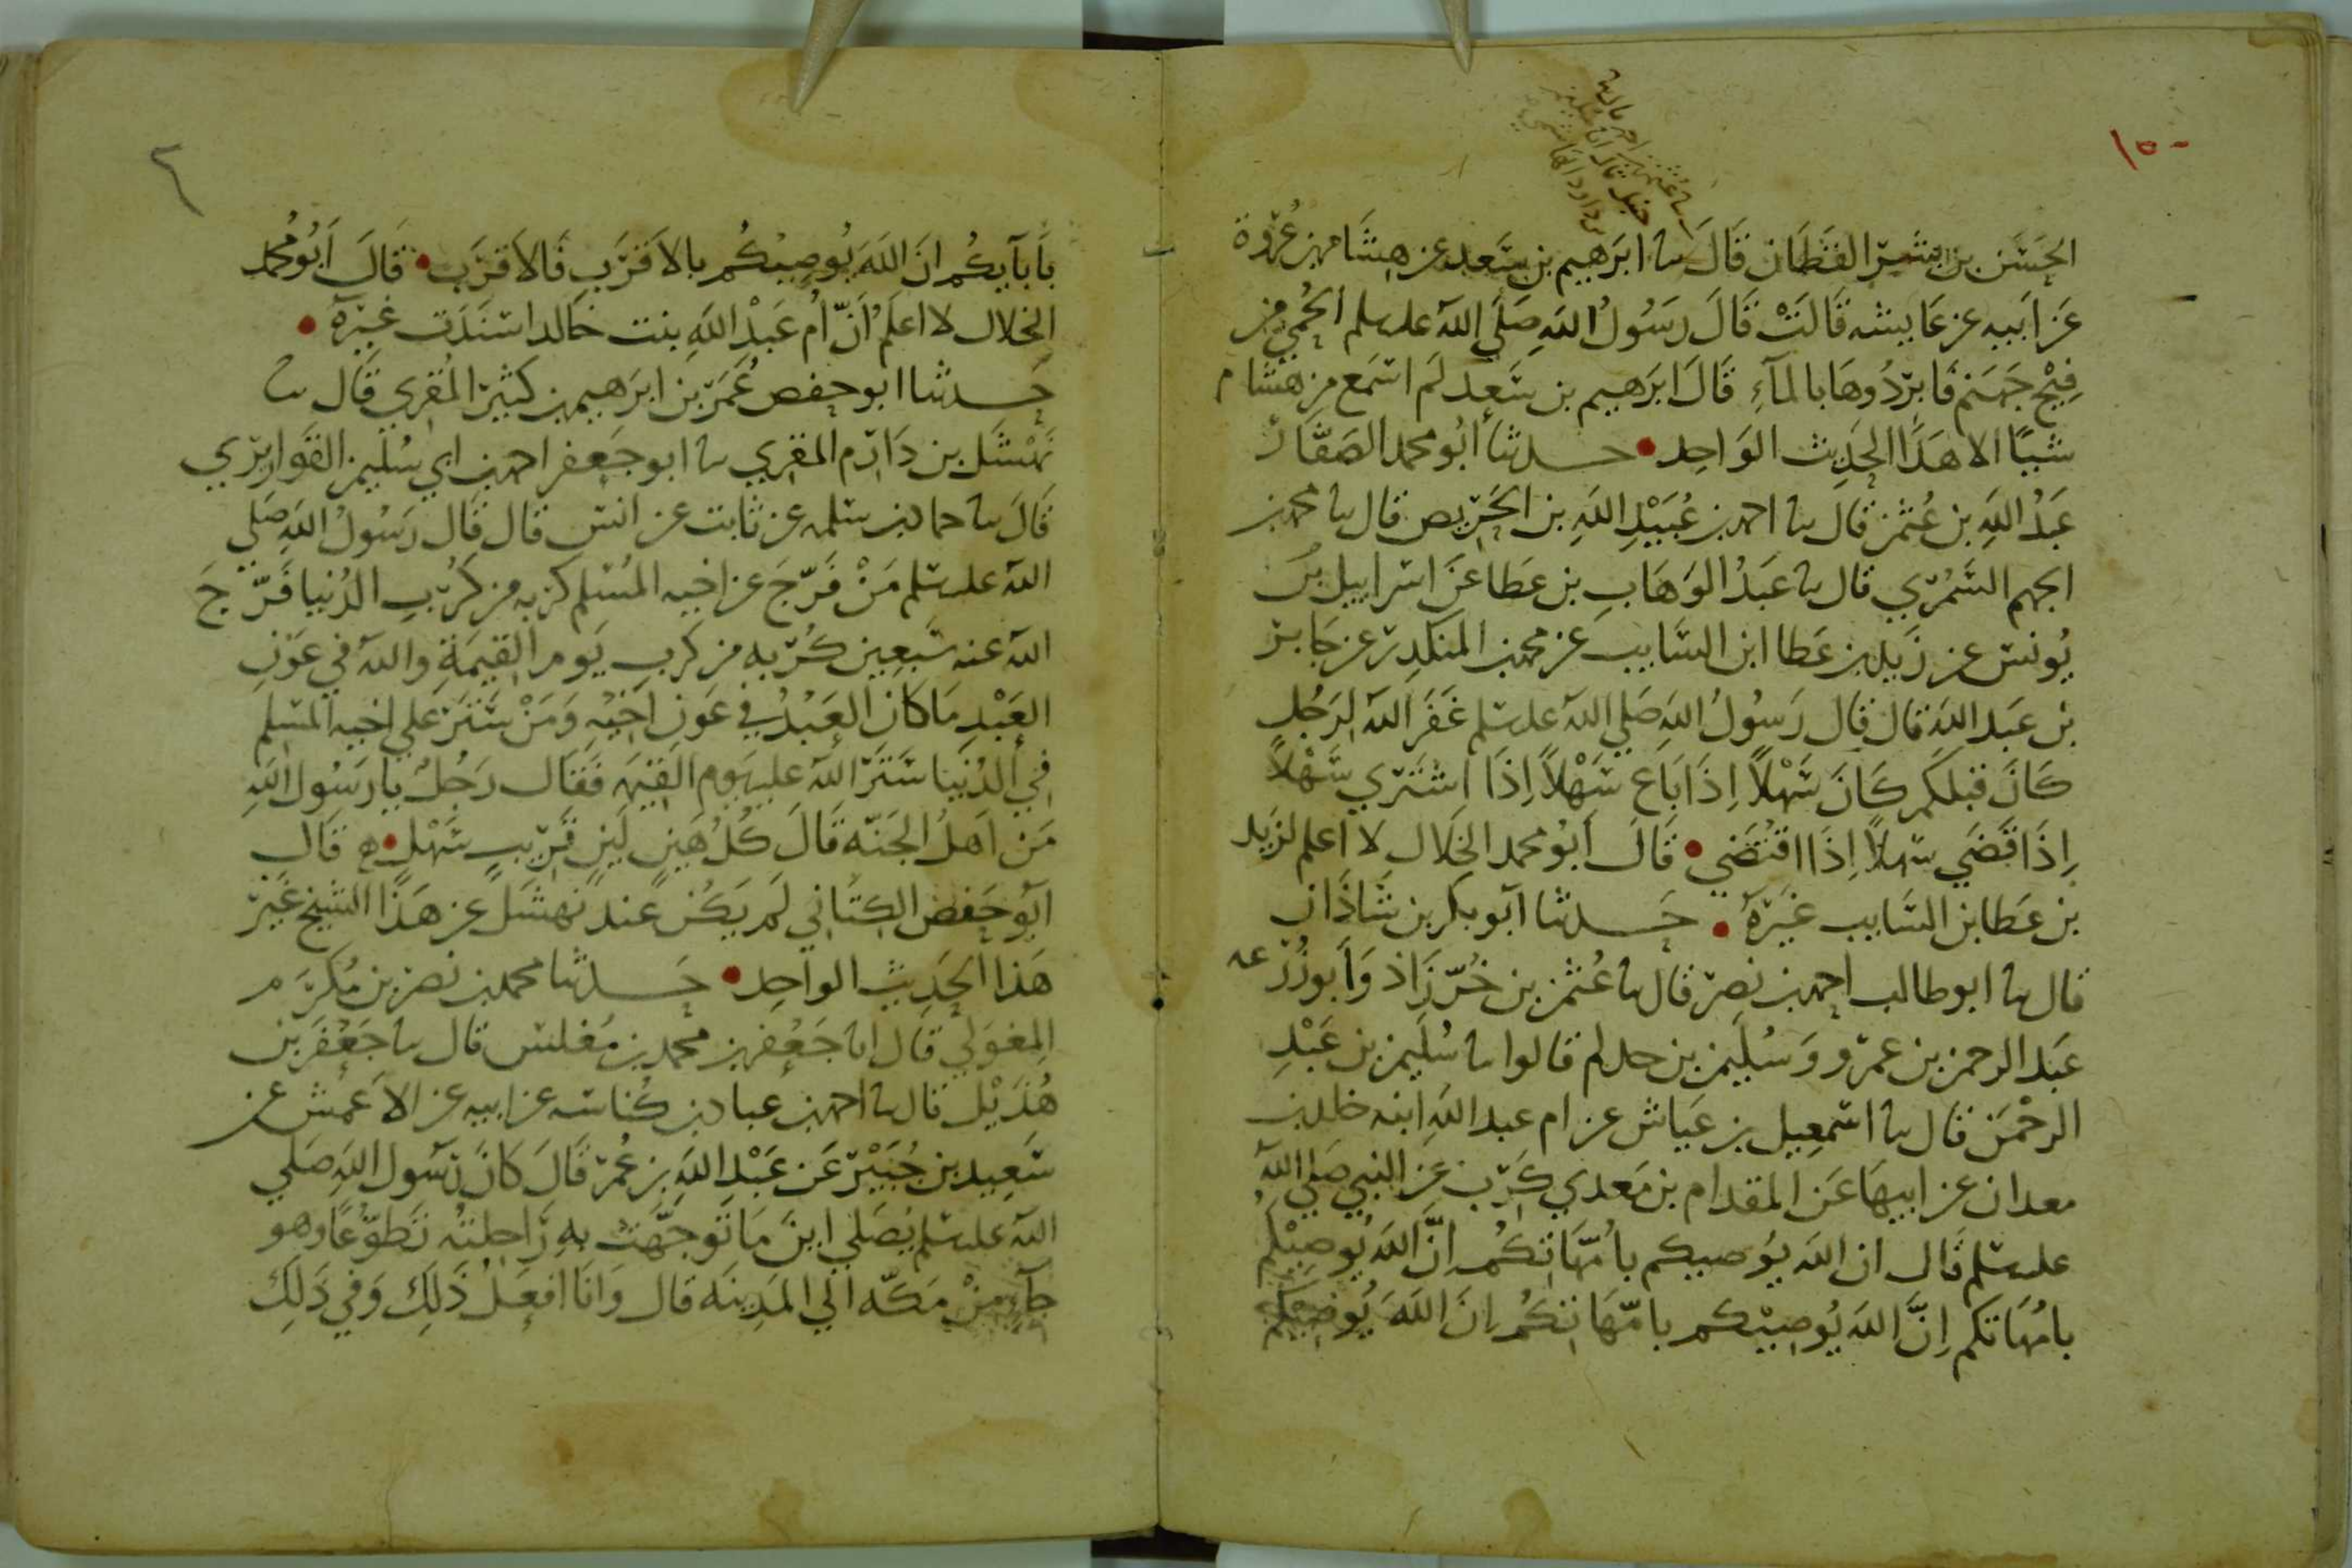 ١٥٠
الحسن بن بشر القطان قَالَ نا ابرَهيم بن سَعد عن هِشَام بن عُروة
عَن ابَيه عن عَايشه قَالَتْ قَالَ رَسُولُ اللهِ صَلَّي اللهُ علىسلم الحُمي من
فِيْحِ جَهَنم فَابرُدُوهَا بالمآءِ قَالَ ابرَهيم بن سَعد لَم اسمَع من هشام
شيًا الا هَذَا الحَدِيث الوَاحِد • حدثنا أبُو محمد الصَفَّار
عَبدُ اللهِ بن عُثمن قال نا احمد بن عُبَيْدِ اللهِ بن الحَرِيص قال نا محمد بن
الجهم السَّمُري قال نا عَبدُ الوَهَابِ بن عَطا عَن اسرايل بن
يُونس عن زَيد بن عَطا ابن السَّايب عن محمد بن المنكدِر عن جَابر
بن عَبد الله قال قال رَسُولُ اللهِ صَلي اللهُ علىسلم غَفَر اللهُ لرَجُلٍ
كَانَ قبلكم كَانَ سَهْلاً اِذَا بَاعَ سَهْلاً اِذَا اشتَري سَهْلاً
اِذَا قَضَي سهلاً اِذَا اقتُضَي • قَالَ أبُو محمد الخَلال لا اعلم لزَيد
بن عَطا بن السَّايب غَيرَهُ • حَدثنا أبو بكر بن شَاذَان
قال نا ابو طالب احمد بن نصر قال نا عُثمن بن خُرَّزَاذ وَأبو زُرْعه
عَبد الرحمن بن عمرو وَسُلَيمن بن حدلم قالوا نا سُلَيمن بن عَبْدِ
الرحْمَن قال نا اسمعيل بن عَياش عن ام عبد اللهِ ابنه خالد بن
معدان عن ابيهَا عَن المقدام بن مَعدي كَرب عَن النبي صَلي اللهُ
علىسلم قَال ان الله يُوصيكم بامَّهَاتكُم اِنَّ اللهَ يُوصِيْكُم
بامهَاتكم اِنَّ اللهَ يُوصِيْكم بامّهَاتكُم اِنَ اللهَ يُوصِيْكم
بأبَآيِكُم انَ اللهَ يُوصِيْكُم بالاَقرَب فَالاَقرَب • قَالَ أبُو محمد
الخلال لا اعلَمُ أنّ أم عَبْد اللهِ بنت خَالد اسنَدَت غيرَهُ •
حَدثنا ابو حفص عُمَر بن ابرَهيم بن كثير المُقري قَال نا
نَهْشَل بن دَارم المقري نا ابو جَعفر احمد بن ابي سُلَيمن القَواريري
قَالَ نا حماد بن سَلمه عن ثابت عن انس قال قَال رَسُولُ اللهِ صَلي
اللهُ علىسلم مَنْ فَرّجَ عن اخيه المُسلم كربه من كُرَبِ الدُنيا فَرّجَ
اللهُ عنه سَبعِين كُربه من كَربِ يَوم القيمَةِ واللهُ في عَوْنِ
العَبْدِ مَا كَانَ العَبْدُ في عَون اَخِيْهِ وَمَنْ سَتَر علي اخيه المسلم
في الدُنيا سَتَر اللهُ عليه يوم القيمه فَقَال رَجُلٌ يا رَسُول اللهِ
مَن اَهلُ الجَنَّه قَالَ كُلُ هَيِنٍ لَيِنٍ قَريبٍ سَهْلٍ • ه قَال
أبو حَفص الكتَاني لَم يَكُن عند نهشَل عن هَذَا الشيخ غيرَ
هَذا الحَدِيث الواحِد • حَدثنا محمد بن نصر بن مُكَرَّم
المِغوَلي قال انا جَعفر بن محمد بن مُغلس قال نا جَعْفَر بن
هُذَيْل قال نا احمد بن عباد بن كُناسَه عن ابيه عن الاَعمش عن
سَعِيد بن جُبَيْر عَن عَبْدِ اللهِ بن عُمر قَالَ كَانَ رَسُول اللهِ صَلي
اللهُ علىسلم يُصَلي اينَ مَا تَوجّهَت بِهِ رَاحِلتُه تَطوّعًا وهو
جآءٍ مِنْ مَكّه الي المَدِينَه قال وَانَا افعَلُ ذَلِكَ وَفي ذَلِكَ